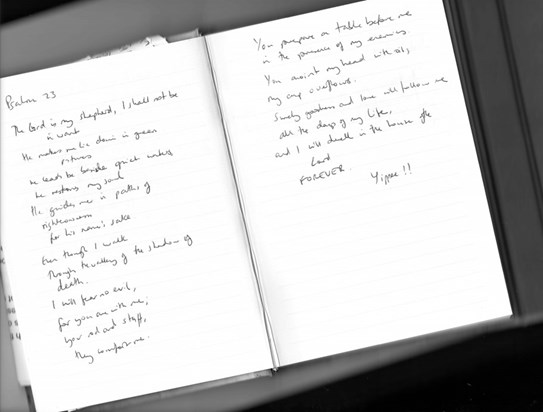 Psalm 23
The Lord is my shepherd, I shall not be
in want
He makes me lie down in green
pastures
he leads me beside quiet waters,
he restores my soul
He guides me in paths of
righteousness
for his name's sake
Even though I walk
through the valley of the shadow of
death.
I will fear no evil,
for you are with me;
your rod and staff,
they comfort me.
You prepare a table before me
in the presence of my enemies
You anoint my head with oil,
my cup overflows.
Surely goodness and love will follow me
all the days of my life,
and I will dwell in the house of the
Lord
FOREVER. Yippee!!